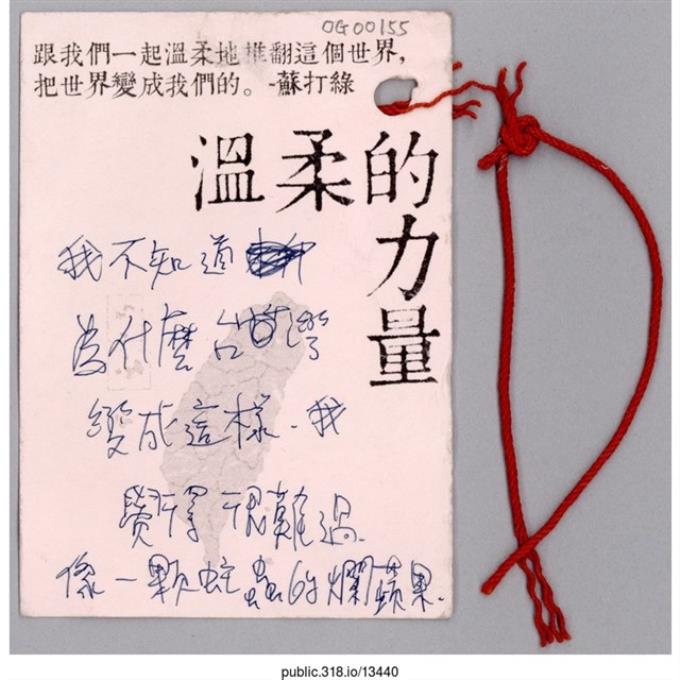 OG00155
跟我們一起溫柔地推翻這個世界,
把世界變成我們的。-蘇打綠
溫柔的力量
我不知道
為什麼台灣
變成這樣.我
覺得很難過.
像一顆蛀蟲的爛蘋果.
public.318.io/13440